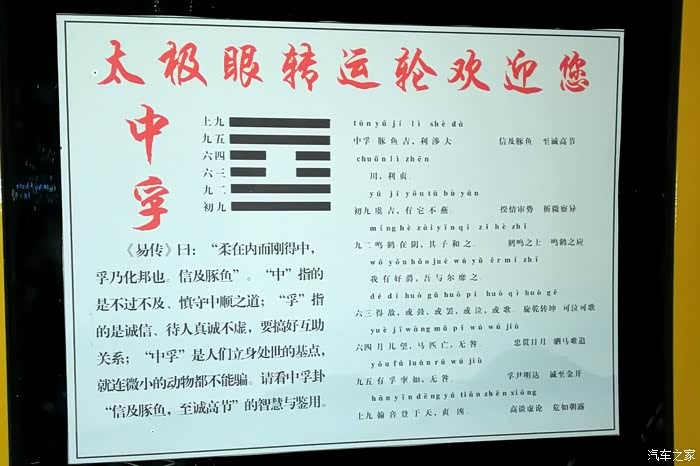 太极眼转运轮欢迎您
中孚
上九
九五
六四
六三
九二
初九
《易传》曰：“柔在内而刚得中，
孚乃化邦也。信及豚鱼”。“中”指的
是不过不及、慎守中顺之道；“孚”指
的是诚信、待人真诚不虚，要搞好互助
关系；“中孚”是人们立身处世的基点，
就连微小的动物都不能骗。请看中孚卦
“信及豚鱼，至诚高节”的智慧与鉴用。
tún yú jí lì shè dà
中孚 豚鱼吉，利涉大 信及豚鱼 至诚高节
chuān lì zhēn
川，利贞。
yú jí yǒu tā bù yàn
初九 虞吉，有它不燕。 揆情审势 析微察异
míng hè zài yīn qí zǐ hè zhī
九二 鸣鹤在阴，其子和之。 鹤鸣之士 鸣鹤之应
wǒ yǒu hǎo jué wú yǔ ěr mí zhī
我有好爵，吾与尔靡之。
dé dí huò gǔ huò pí huò qì huò gē
六三 得敌，或鼓，或罢，或泣，或歌。 旋乾转坤 可泣可歌
yuè jī wàng mǎ pǐ wú wú jiù
六四 月几望，马匹亡，无咎。 忠贯日月 驷马难追
yǒu fú luán rú wú jiù
九五 有孚挛如，无咎。 孚尹明达 诚至金开
hàn yīn dēng yú tiān zhēn xiōng
上九 翰音登于天，贞凶。 高谈虚论 危如朝露
汽车之家